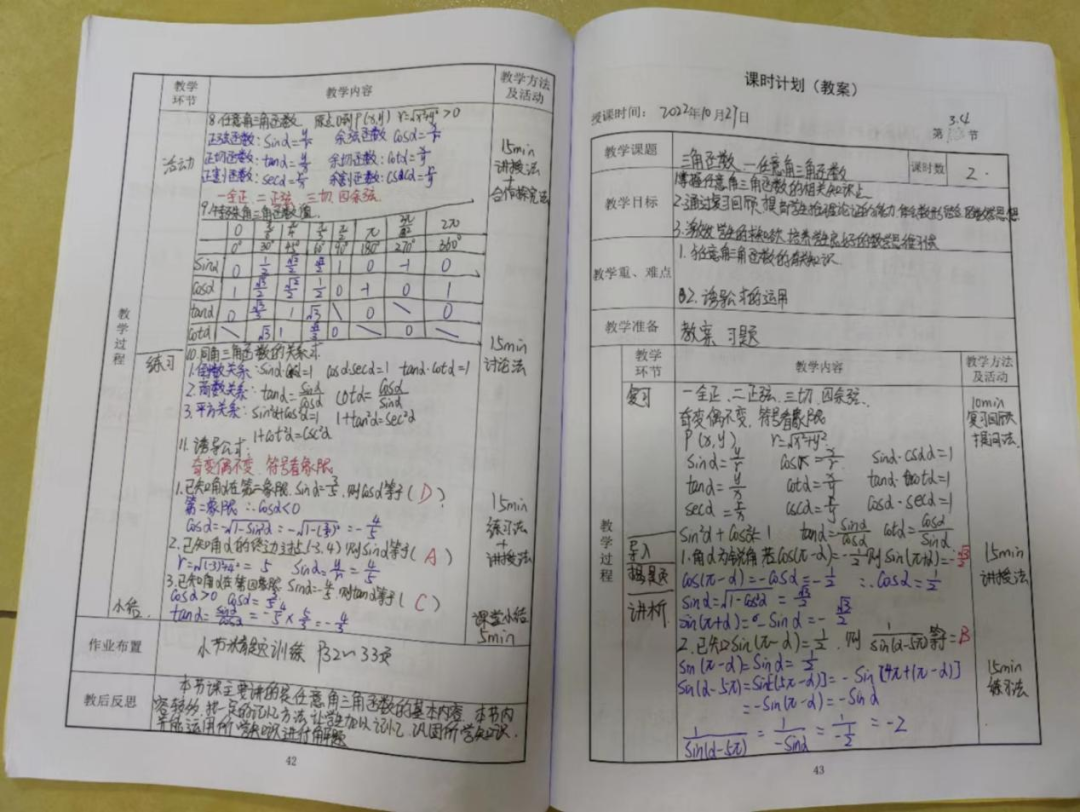 教学环节 教学内容 教学方法及活动
教学过程
活动
8.任意角三角函数 原点O到P(x,y) r=√x²+y²>0
正弦函数:sinα=y/r 余弦函数 cosα=x/r
正切函数:tanα=y/x 余切函数:cotα=x/y
正割函数:secα=r/x 余割函数:cscα=r/y
一全正.二正弦.三切.四余弦.
15min
讲授法
+
合作探究法
9.特殊角三角函数值.
0 π/2 π 3π/2 2π
0° 30° 45° 60° 90° 180° 270° 360°
sinα 0 1/2 √2/2 √3/2 1 0 -1 0
cosα 1 √3/2 √2/2 1/2 0 -1 0 1
tanα 0 √3/3 1 √3 \ 0 \ 0
cotα \ √3 1 √3/3 0 \ 0 \
练习
10.同角三角函数的关系式
1.倒数关系:sinα·cscα=1 cosα·secα=1 tanα·cotα=1
2.商数关系:tanα=sinα/cosα cotα=cosα/sinα
3.平方关系:sin²α+cos²α=1 1+tan²α=sec²α
1+cot²α=csc²α
15min
讨论法
11.诱导公式:
奇变偶不变.符号看象限.
1.已知α在第二象限.sinα=3/5.则cosα等于(D)
第二象限 ∴cosα<0
cosα=-√1-sin²α=-√1-(3/5)²=-4/5
2.已知角α的终边过(-3,4)则sinα等于(A)
r=√(-3)²+4²=5 sinα=y/r=4/5
3.已知角α在第四象限 sinα=-4/5.则tanα等于(C)
cosα>0 cosα=3/5
tanα=sinα/cosα=-4/5×5/3=-4/3
15min
练习法
+
讲授法
小结
课堂小结
5min
作业布置 小节标题训练 P32~33页
教后反思
本节课主要讲的是任意角三角函数的基本内容 本节内
容较多.
的记忆方法 让学生加以记忆 巩固所学知识.
并能运用所学知识进行解题
42
课时计划(教案)
授课时间: 2022年10月27日 第 3.4 节
教学课题 三角函数、一任意角三角函数 课时数 2.
教学目标
1.掌握任意角三角函数的相关知识点
2.通过复习回顾.提高学生推理论证的能力.
3.激发学生的求知欲.培养学生良好的数学思维习惯
教学重、难点
1.任意角三角函数的相关知识.
2.诱导公式的运用
教学准备 教案 习题
教学环节 教学内容 教学方法及活动
教学过程
复习
一全正.二正弦.三切.四余弦.
奇变偶不变.符号看象限.
P(x,y) r=√x²+y²
sinα=y/r cosα=x/r sinα·cscα=1
tanα=y/x cotα=x/y tanα·cotα=1
secα=r/x cscα=r/y cosα·secα=1
sin²α+cos²α=1 tanα=sinα/cosα cotα=cosα/sinα
10min
复习回顾
提问法.
导入
讲析
1.角α为锐角 若cos(π-α)=-1/2则sin(π+α)=-√3/2
cos(π-α)=-cosα=-1/2 ∴cosα=1/2
sinα=√1-cos²α=√3/2
sin(π+α)=-sinα=-√3/2
15min
讲授法
2.已知sin(π-α)=1/2.则 1/sin(α-5π)等=B
sin(π-α)=sinα=1/2
sin(α-5π)=sin[-(5π-α)]=-sin[4π+(π-α)]
=-sin(π-α)=-sinα
1/sin(α-5π)=1/-sinα=1/-1/2=-2
15min
练习法
43